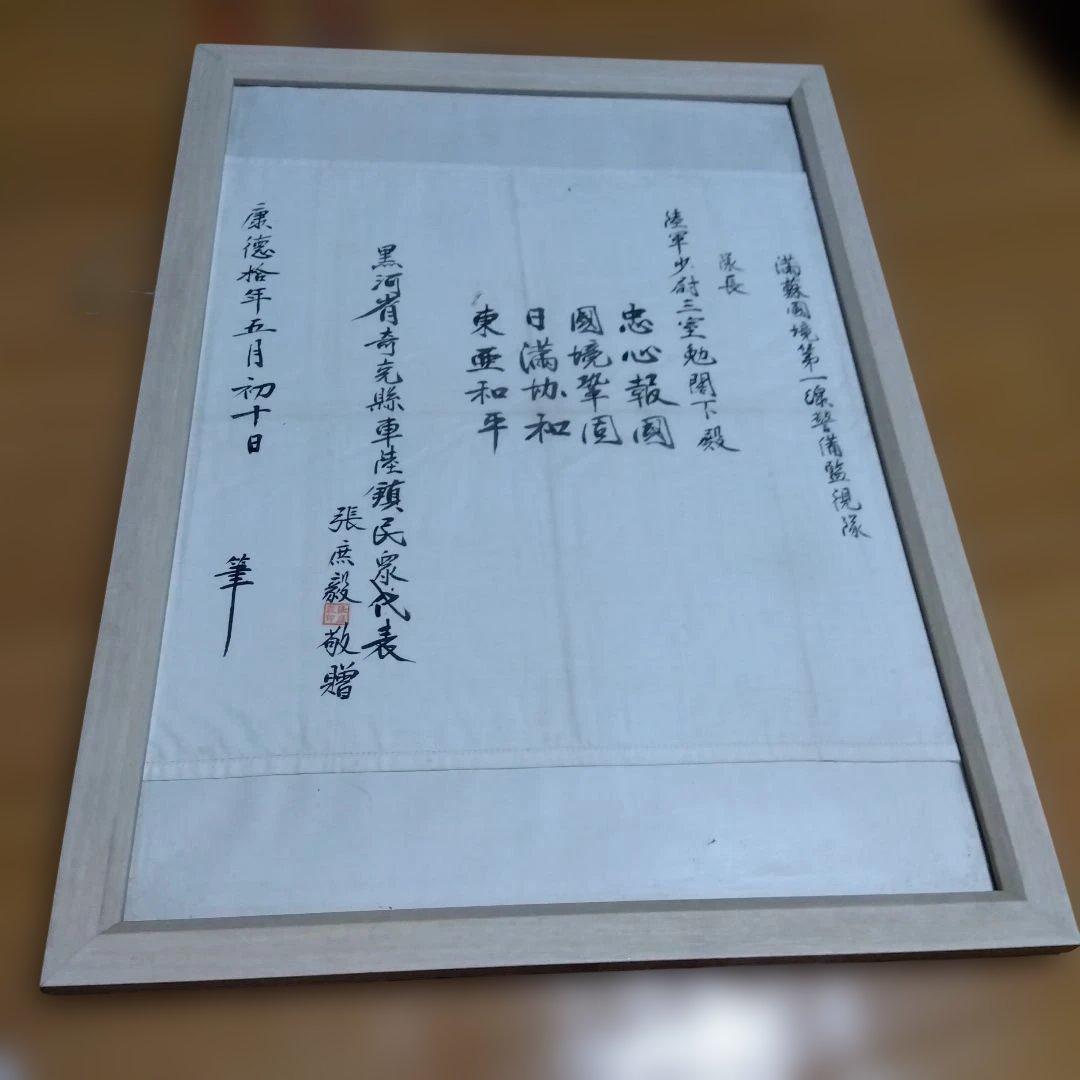 滿蘇國境第一線警備監視隊
隊長
陸軍少尉三室勉閣下殿
忠心報國
國境鞏固
日滿協和
東亜和平
黑河省奇克縣車陸鎮民眾代表
張庶毅敬贈
康德拾年五月初十日
筆